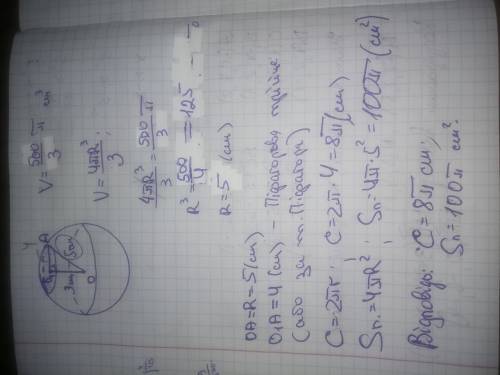 A
3 см
5 см
O
V = 500/3 π см³
V = 4πR³/3 ;
4πR³/3 = 500π/3
R³ = 500/4 = 125
R = 5 (см)
OA = R = 5 (см)
O₁A = 4 (см) – Піфагорова трійка
(або за т. Піфагора)
C = 2πr ; C = 2π · 4 = 8π (см)
Sп. = 4πR² ; Sп. = 4π · 5² = 100π (см²)
Відповідь: C = 8π см;
Sп = 100π см².